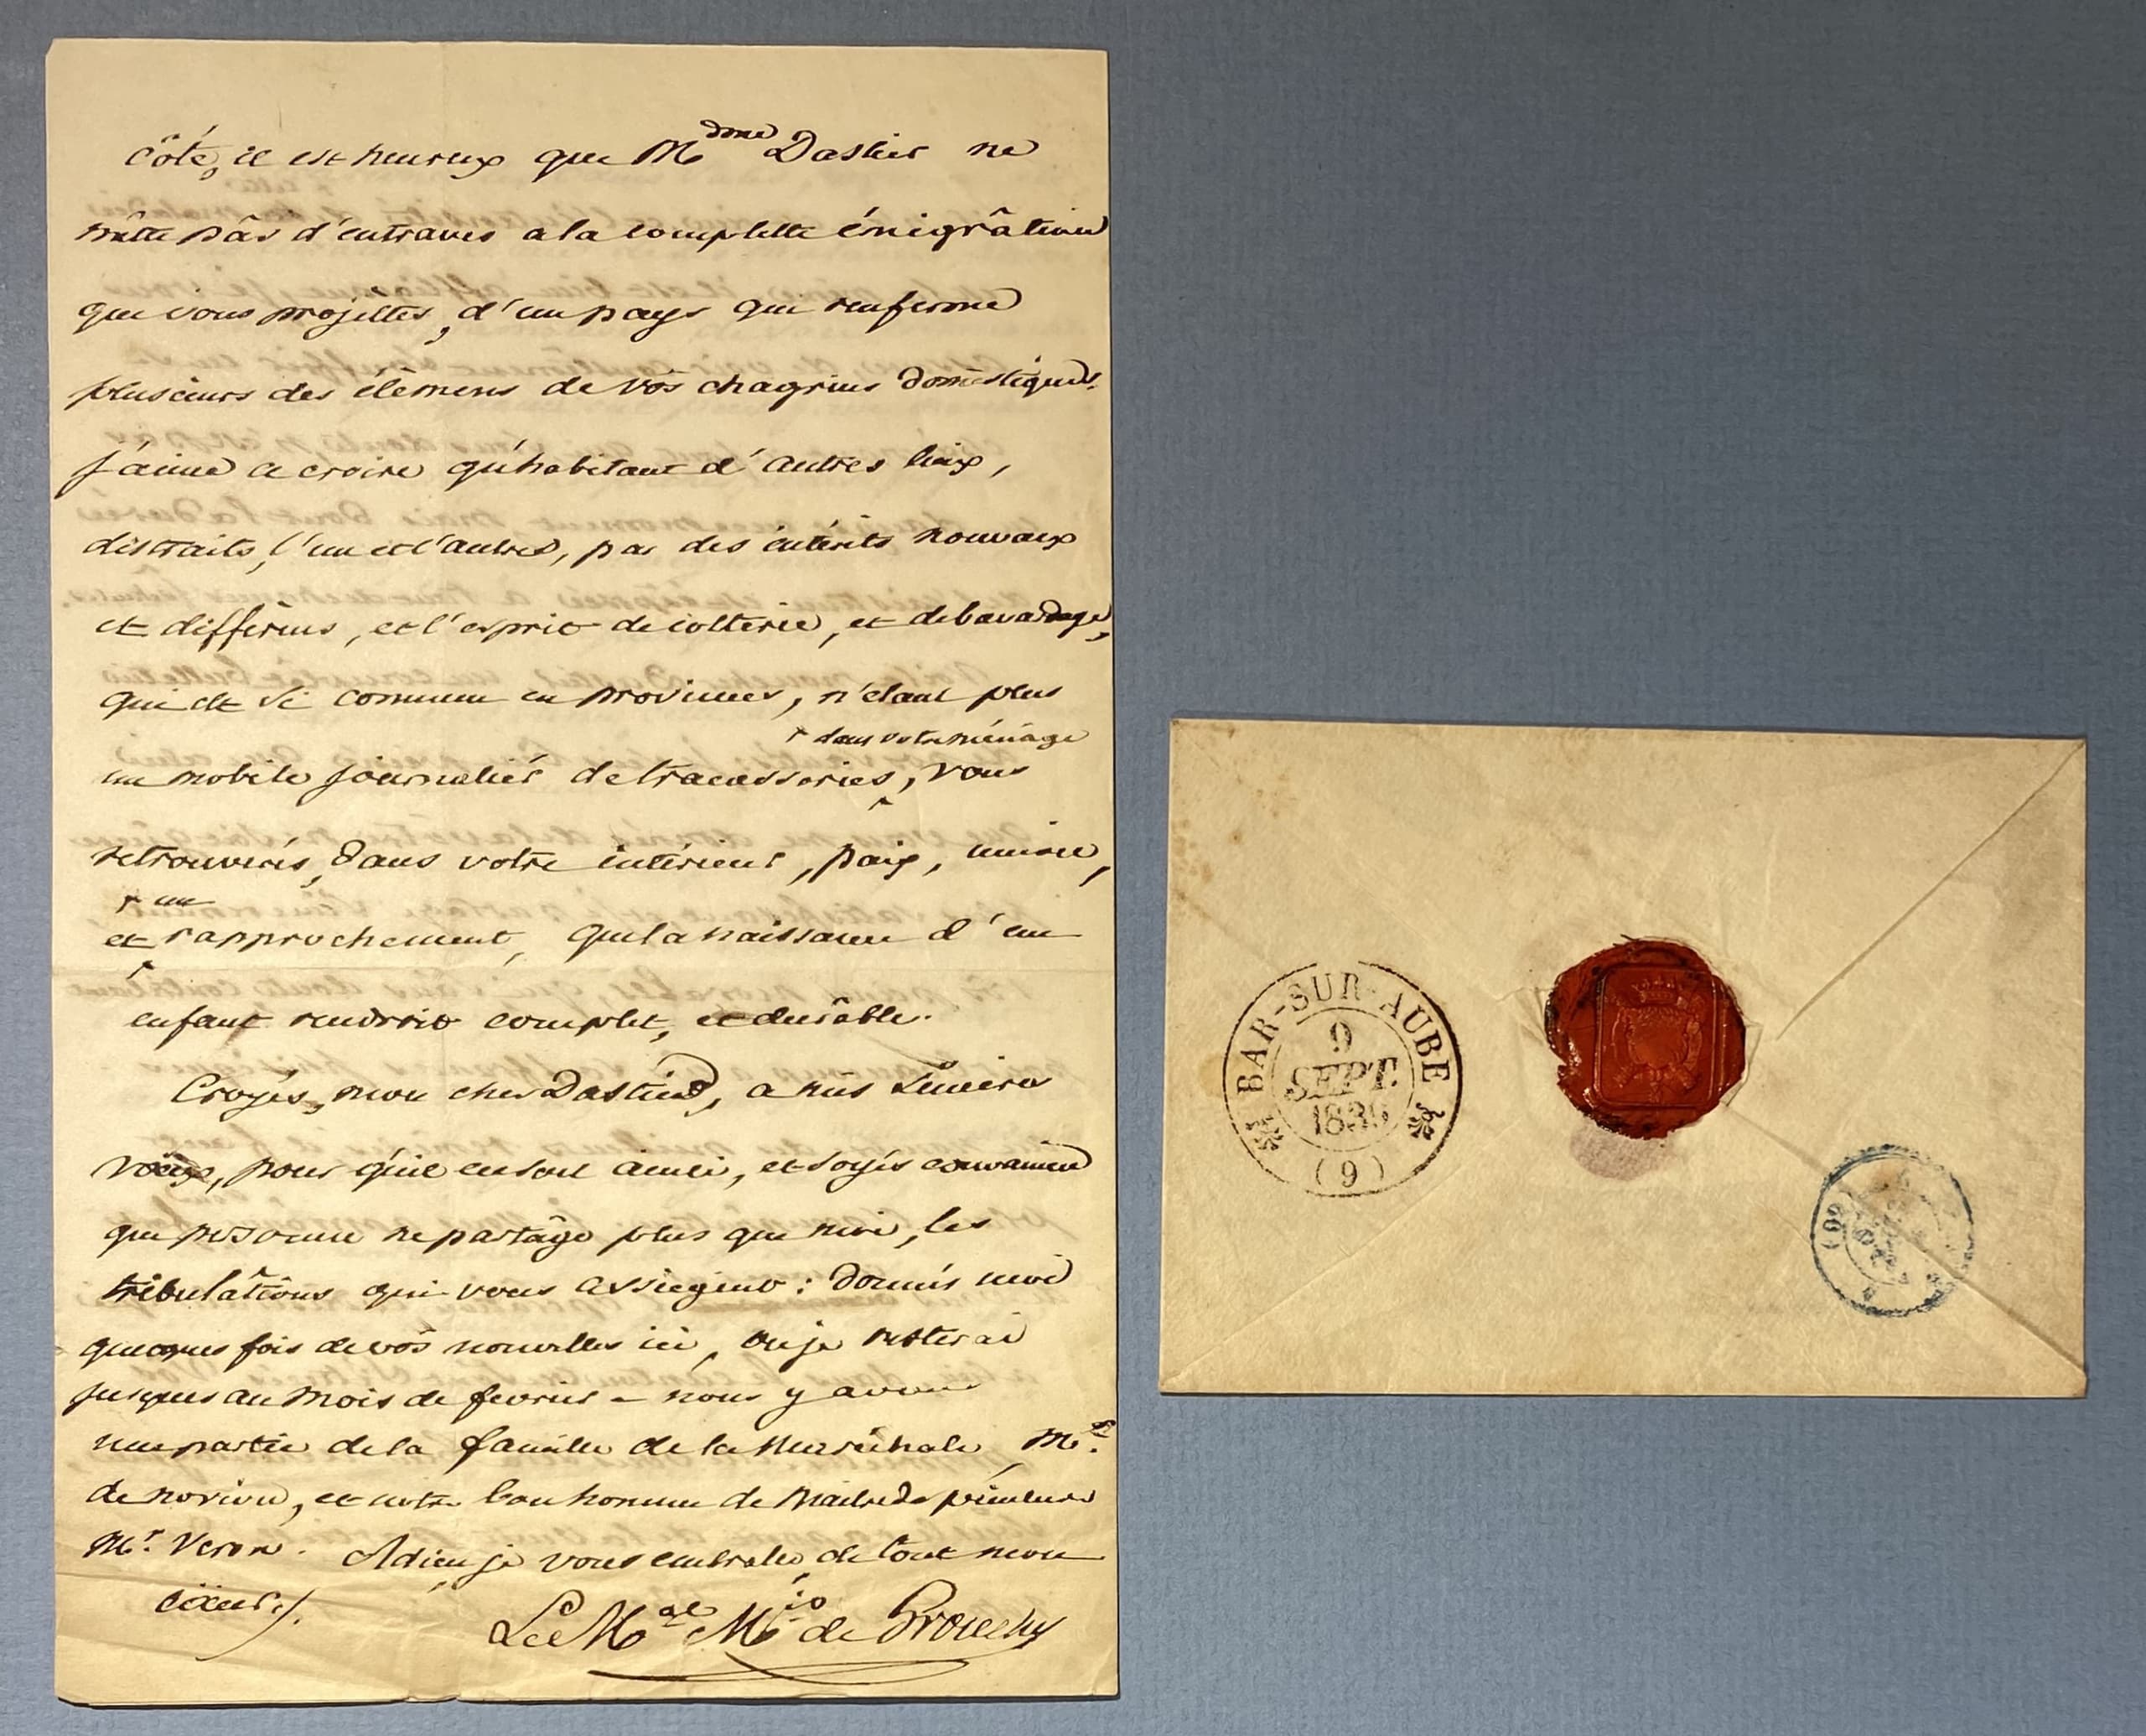 côté, il est heureux que Mdme Dastier ne
mette pâs d'entraves a la complette émigrâtion
que vous projettes, d'un pays qui renferme
plusieurs des élémens de vôs chagrins doméstiques.
J'aime a croire qu'habitant d'autres lieux,
distraits, l'un et l'autre, par des intérêts nouvaux
et différens, et l'esprit de cotterie, et de bavardage,
qui est si commun en provinces, n'étant plus
+ dans votre ménage
un mobile journaliér de tracasseries, vous
retrouverés, dans votre intérieur, paix, union,
+ un
et rapprochement, que la naissance d'un
enfant rendroit complet, et durâble.
Croyés, mon cher Dastier, a mes sincères
vœux, pour qu'il en soit ainsi, et soyés convaincu
que personne ne partâge plus que moi, les
tribulâtions qui vous assiegent : donnés moi
quelques fois de vôs nouvelles ici, où je resterai
jusques au mois de fevrier - nous y avons
une partie de la famille de la Maréchale, Mr.
de norion, et notre bon homme de Maitre de peinture
Mr. Veron. Adieu je vous embrasse, de tout mon
cœur ./.
Le Mal Mis de Grouchy
BAR-SUR-AUBE
9
SEPT.
183
(9)
(60)